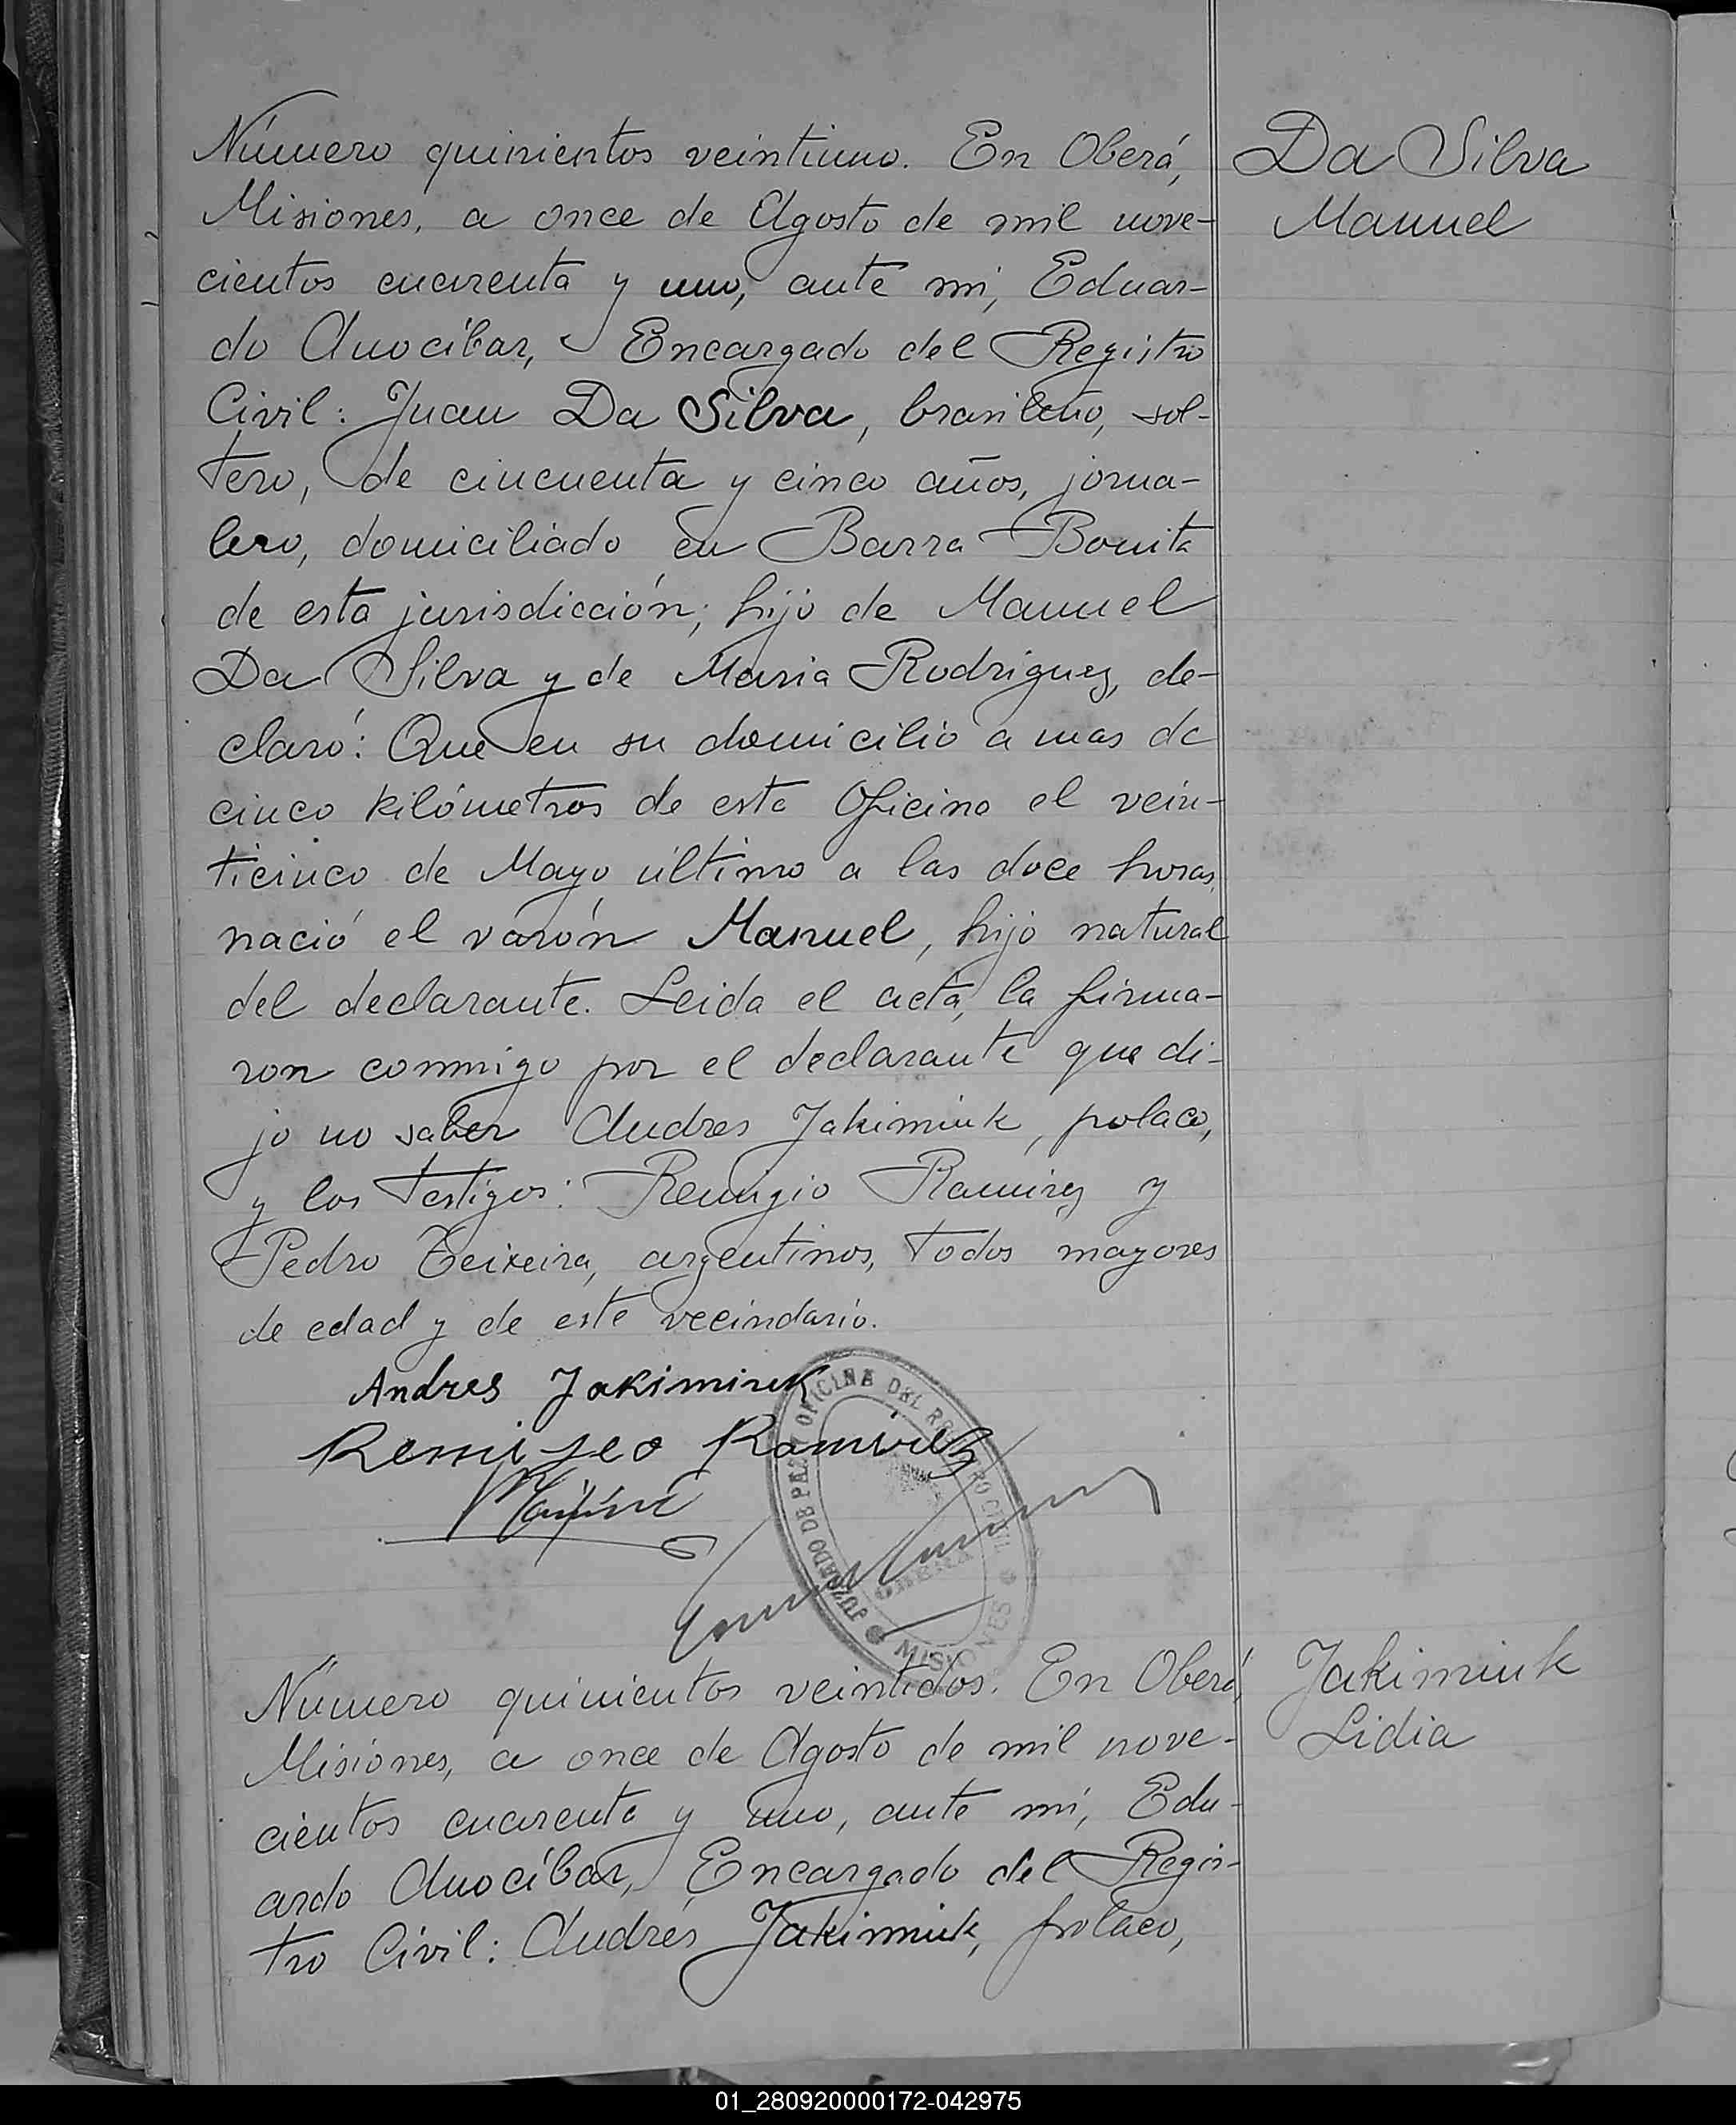 Número quinientos veintiuno. En Oberá,
Misiones, a once de Agosto de mil nove-
cientos cuarenta y uno, ante mi, Eduar-
do Anocíbar, Encargado del Registro
Civil: Juan Da Silva, brasileño, sol-
tero, de cincuenta y cinco años, jorna-
lero, domiciliado en Barra Bonita
de esta jurisdicción; hijo de Manuel
Da Silva y de Maria Rodriguez, de-
claró: Que en su domicilio a mas de
cinco kilómetros de esta Oficina el vein-
ticinco de Mayo último a las doce horas,
nació el varón Manuel, hijo natural
del declarante. Leida el acta, la firma-
ron conmigo por el declarante que di-
jo no saber Andres Jakimiuk, polaco,
y los testigos: Remigio Ramirez y
Pedro Teixeira, argentinos, todos mayores
de edad y de este vecindario.
Andres Jakimiuk
Remijeo Ramirez
JUZGADO DE PAZ Y OFICINA DEL REGISTRO CIVIL
OBERA
MISIONES
Da Silva
Manuel
Número quinientos veintidos. En Oberá,
Misiones, a once de Agosto de mil nove-
cientos cuarenta y uno, ante mí, Edu-
ardo Anocíbar, Encargado del Regis-
tro Civil: Andrés Jakimiuk, polaco,
Jakimiuk
Lidia
01_280920000172-042975